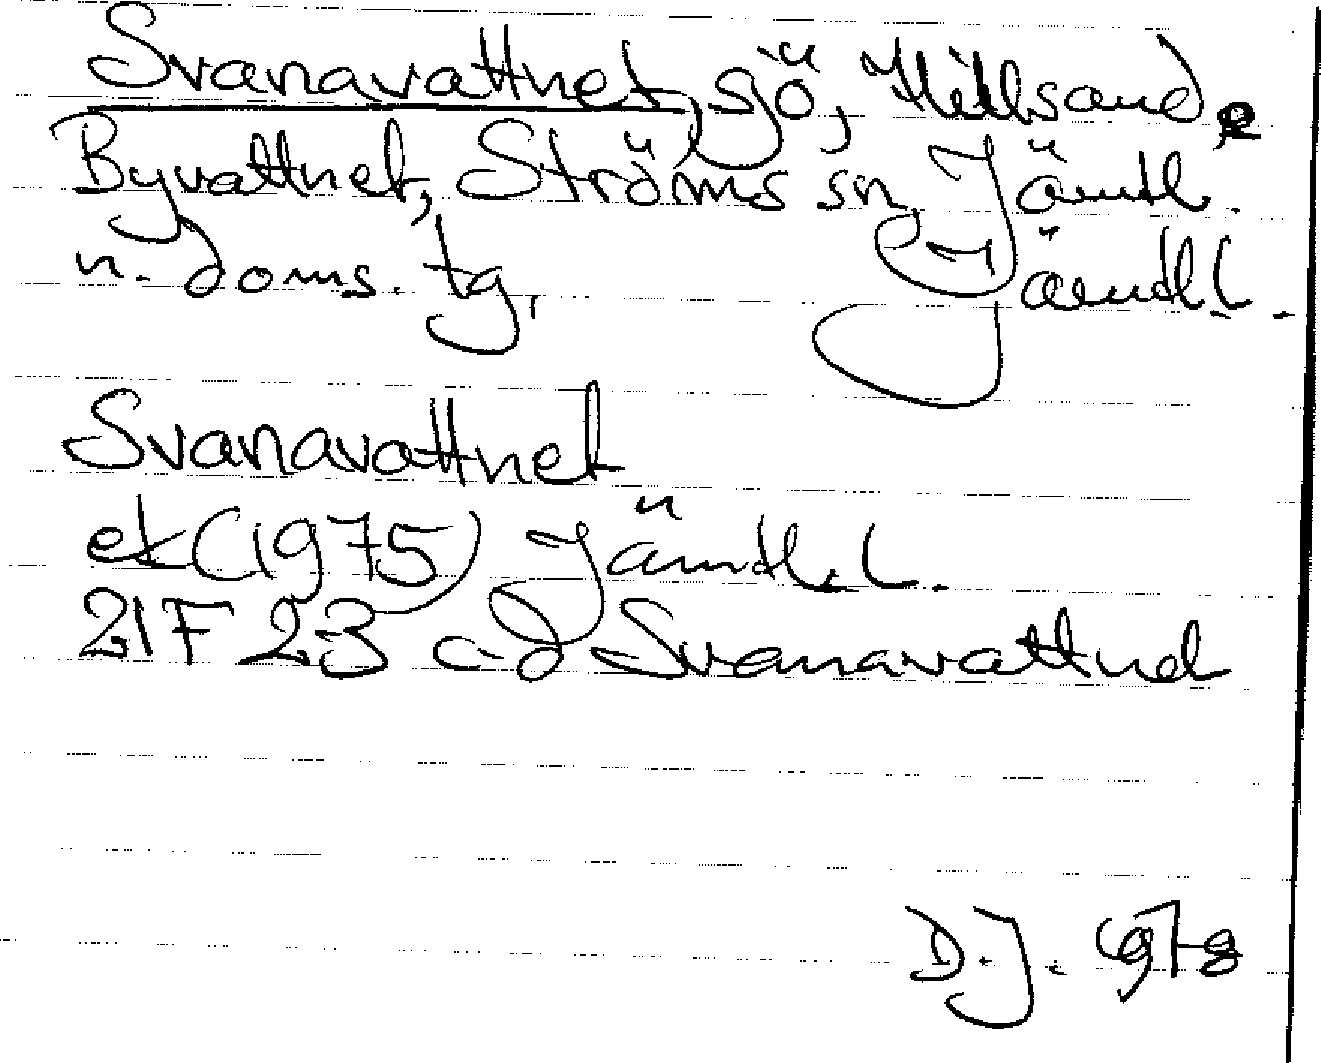 Svanavattnet, sjö, Hillsand,
Byvattnet, Ströms sn, Jämtl.
n. doms. tg, Jämtl. l.
Svanavattnet
ek (1975) Jämtl. l.
21F 23 cd Svanavattnet
D.J. 1978